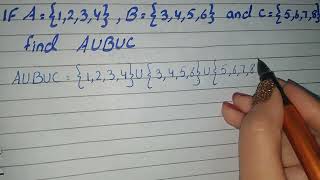 IF A = {1,2,3,4} , B = {3,4,5,6} and C = {5,6,7,8}
find AUBUC
AUBUC = {1,2,3,4} U {3,4,5,6} U {5,6,7,8